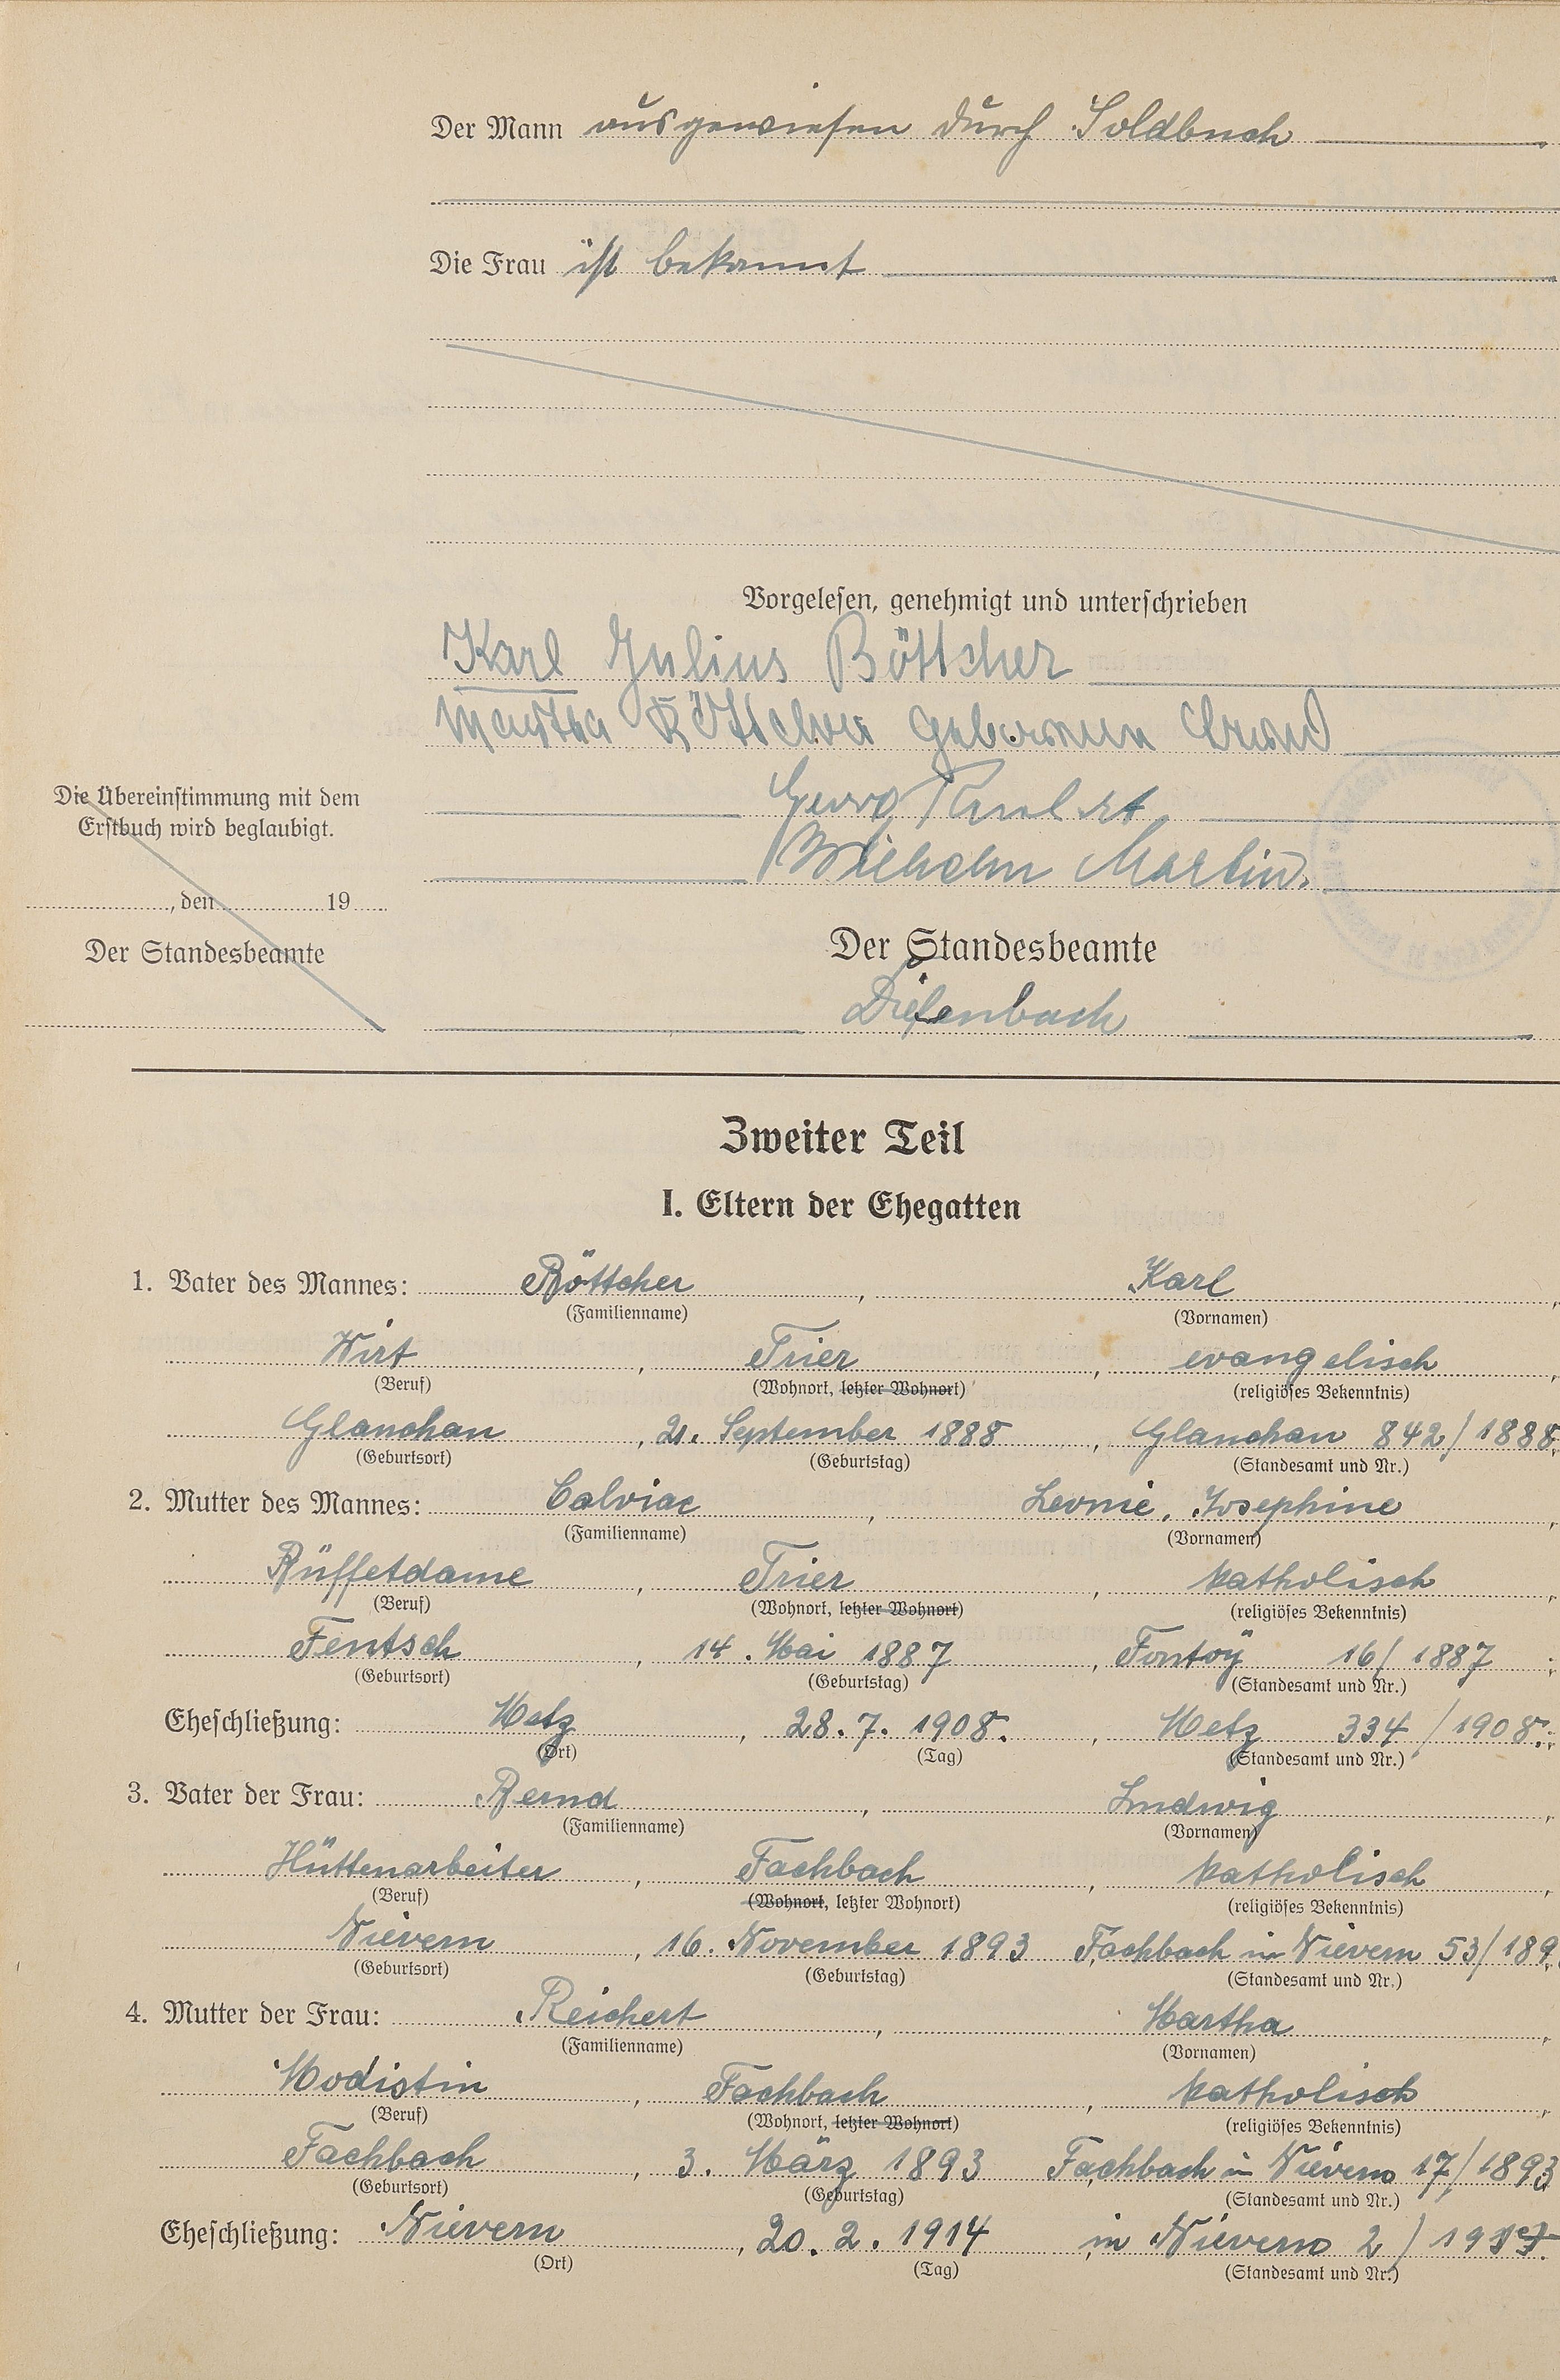 Der Mann ausgewiesen durch Soldbuch
Die Frau ist bekannt
Vorgelesen, genehmigt und unterschrieben
Karl Julius Böttcher
Martha Böttcher geborenen Bernd
Georg
Wilhelm Martin.
Die Übereinstimmung mit dem
Erstbuch wird beglaubigt.
, den 19
Der Standesbeamte
Der Standesbeamte
Diefenbach
Zweiter Teil
I. Eltern der Ehegatten
1. Vater des Mannes: Böttcher, Karl,
(Familienname) (Vornamen)
Wirt, Trier, evangelisch,
(Beruf) (Wohnort, letzter Wohnort) (religiöses Bekenntnis)
Glauchau, 21. September 1888, Glauchau 842/1888;
(Geburtsort) (Geburtstag) (Standesamt und Nr.)
2. Mutter des Mannes: Calviac, Leonie, Josephine,
(Familienname) (Vornamen)
Büffetdame, Trier, katholisch,
(Beruf) (Wohnort, letzter Wohnort) (religiöses Bekenntnis)
Fentsch, 14. Mai 1887, Fontoÿ 16/1887;
(Geburtsort) (Geburtstag) (Standesamt und Nr.)
Eheschließung: Metz, 28.7.1908., Metz 334/1908.;
(Ort) (Tag) (Standesamt und Nr.)
3. Vater der Frau: Bernd, Ludwig,
(Familienname) (Vornamen)
Hüttenarbeiter, Fachbach, katholisch,
(Beruf) (Wohnort, letzter Wohnort) (religiöses Bekenntnis)
Nievern, 16. November 1893, Fachbach in Nievern 53/189
(Geburtsort) (Geburtstag) (Standesamt und Nr.)
4. Mutter der Frau: Reichert, Martha,
(Familienname) (Vornamen)
Modistin, Fachbach, katholisch,
(Beruf) (Wohnort, letzter Wohnort) (religiöses Bekenntnis)
Fachbach, 3. März 1893, Fachbach in Nievern 17/1893
(Geburtsort) (Geburtstag) (Standesamt und Nr.)
Eheschließung: Nievern, 20.2.1914, in Nievern 2/
(Ort) (Tag) (Standesamt und Nr.)